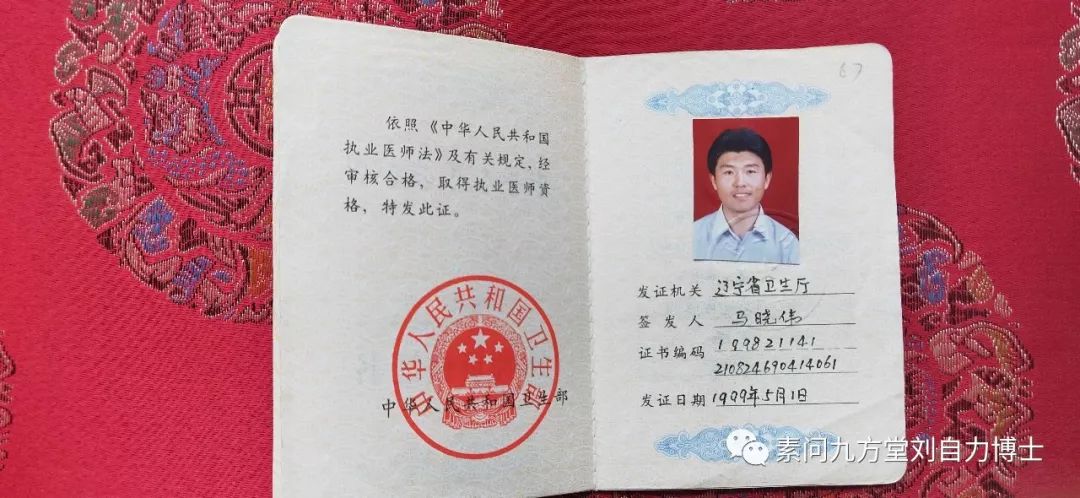 依照《中华人民共和国
执业医师法》及有关规定、经
审核合格，取得执业医师资
格，特发此证。
中华人民共和国卫生部
中华人民共和国卫生部
67
发证机关 辽宁省卫生厅
签发人 马晓伟
证书编码 199821141
210824690414061
发证日期 1999年5月1日
素问九方堂刘自力博士